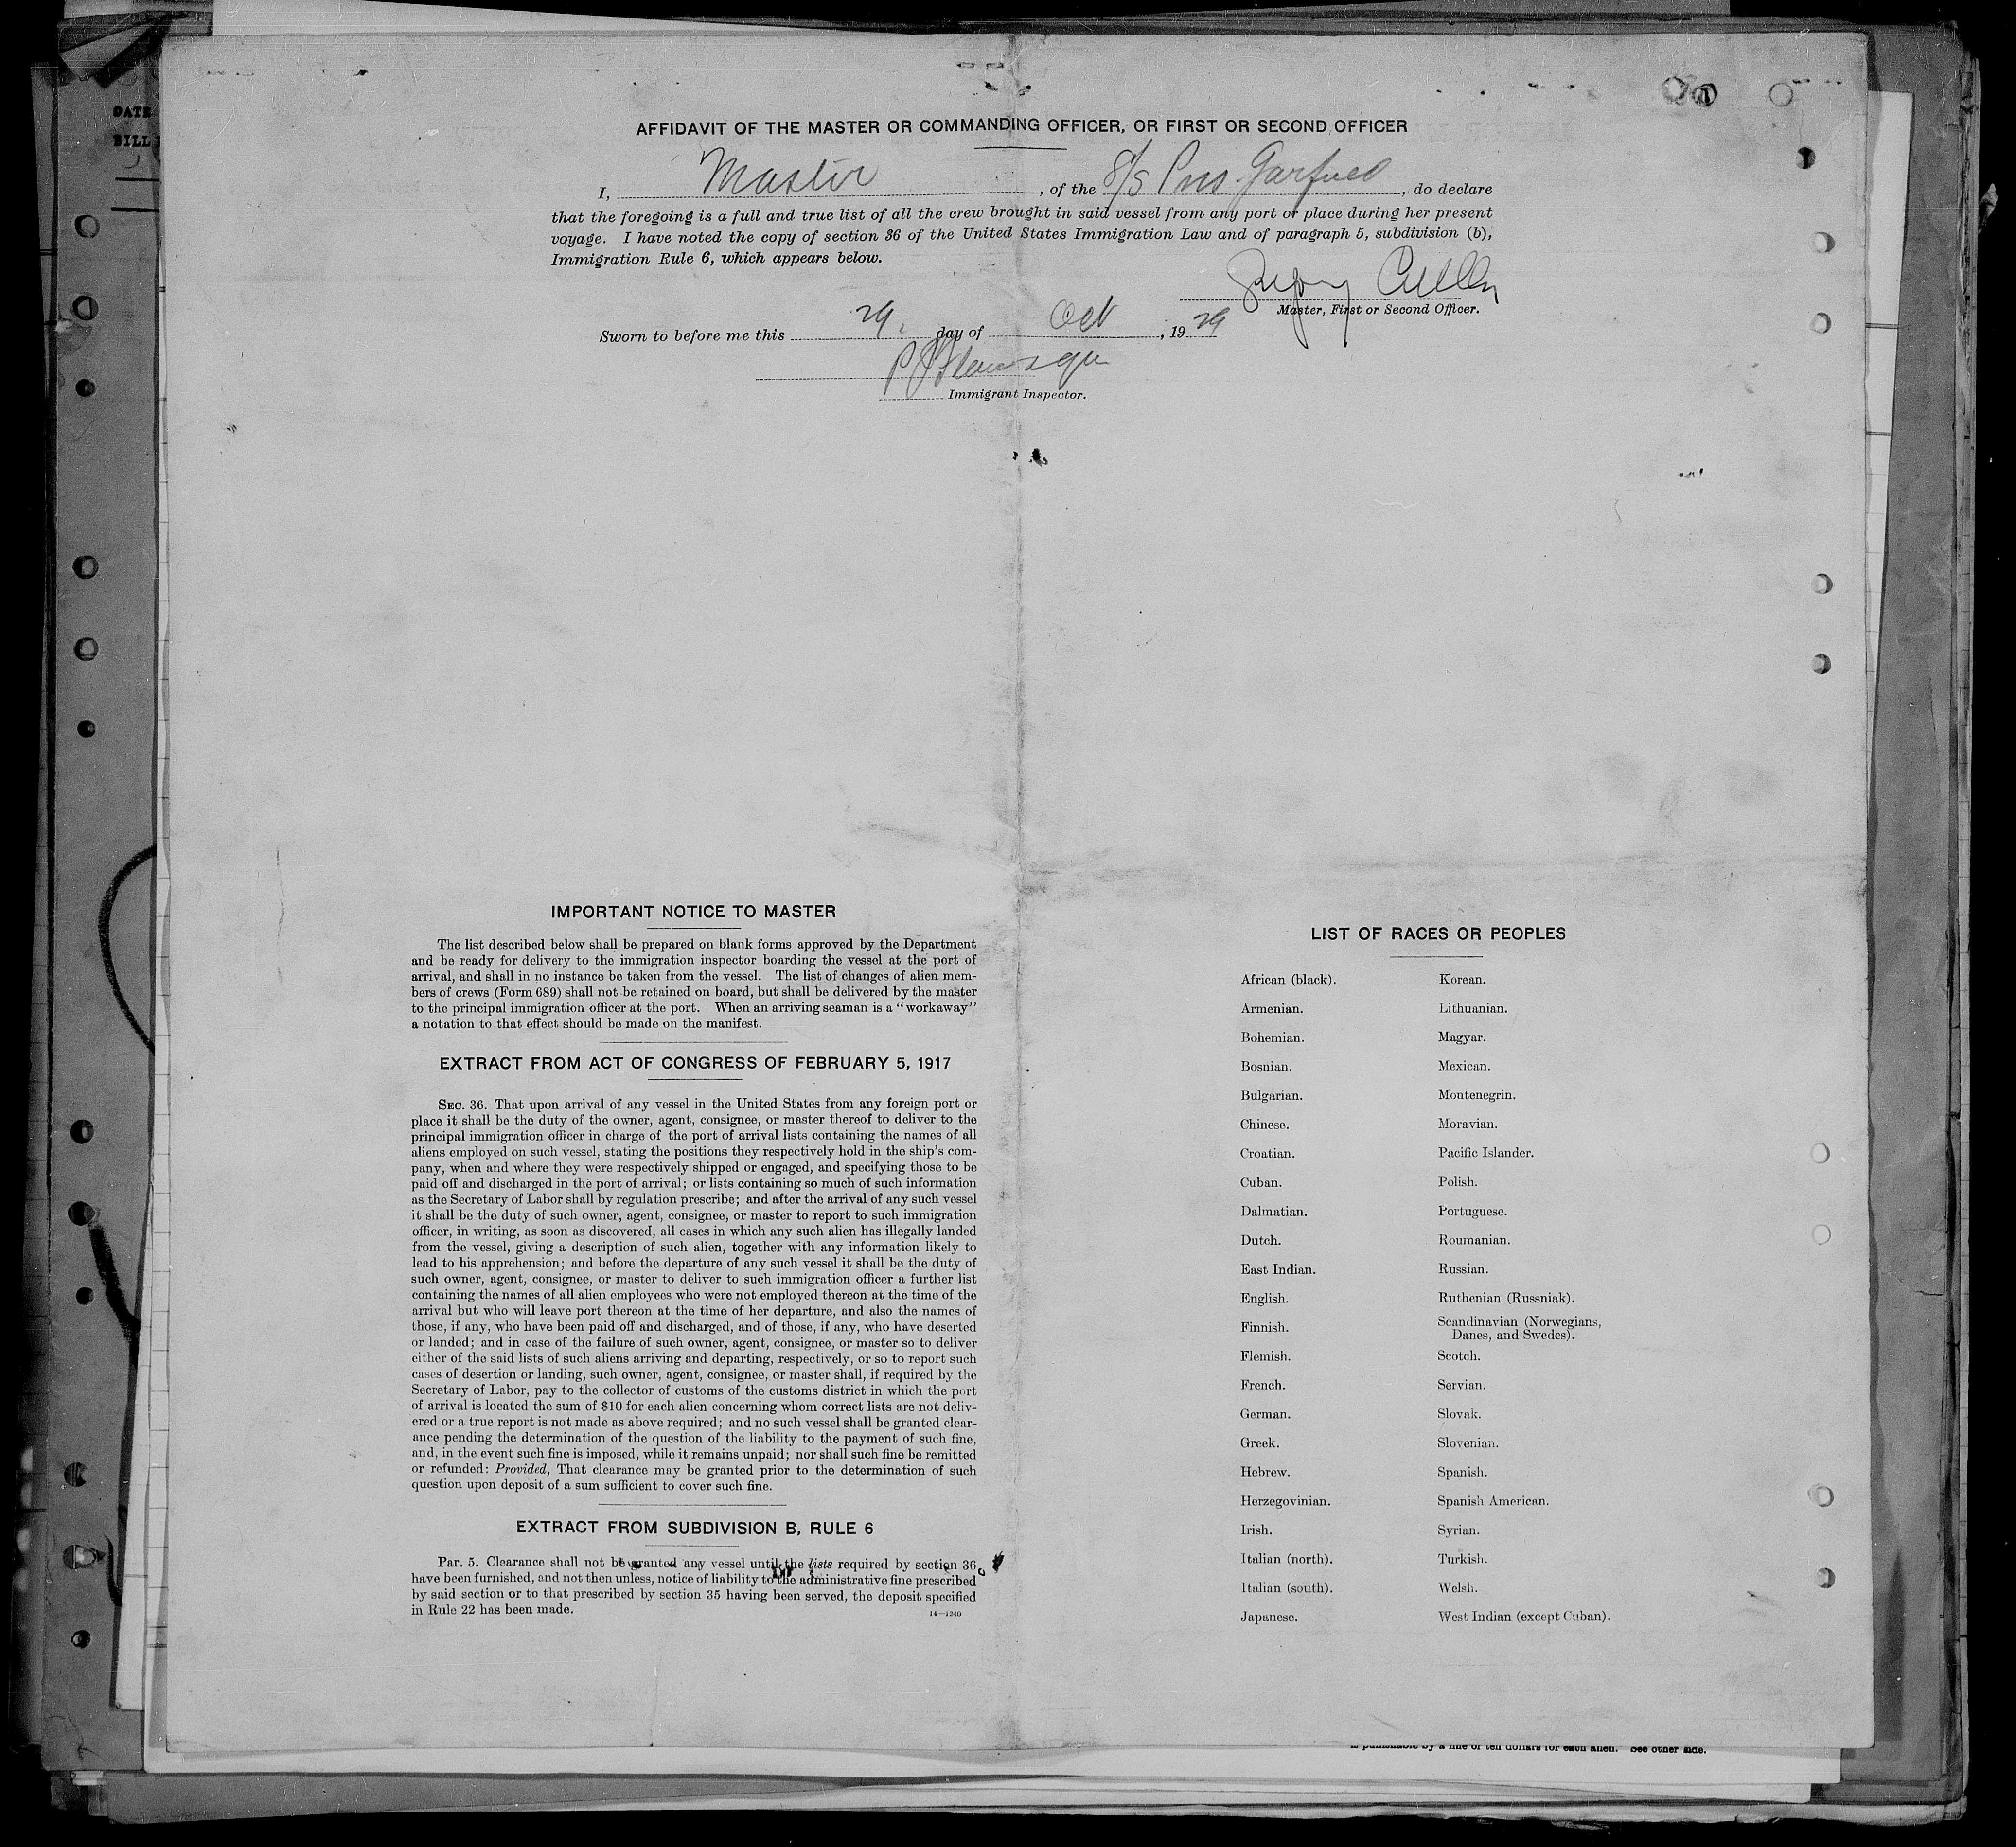 DATE
BILL
AFFIDAVIT OF THE MASTER OR COMMANDING OFFICER, OR FIRST OR SECOND OFFICER
I, Master, of the S/S Pres. Garfield, do declare
that the foregoing is a full and true list of all the crew brought in said vessel from any port or place during her present
voyage. I have noted the copy of section 36 of the United States Immigration Law and of paragraph 5, subdivision (b),
Immigration Rule 6, which appears below.
Master, First or Second Officer.
Sworn to before me this 29. day of Oct, 1929
Immigrant Inspector.
IMPORTANT NOTICE TO MASTER
The list described below shall be prepared on blank forms approved by the Department
and be ready for delivery to the immigration inspector boarding the vessel at the port of
arrival, and shall in no instance be taken from the vessel. The list of changes of alien mem-
bers of crews (Form 689) shall not be retained on board, but shall be delivered by the master
to the principal immigration officer at the port. When an arriving seaman is a "workaway"
a notation to that effect should be made on the manifest.
EXTRACT FROM ACT OF CONGRESS OF FEBRUARY 5, 1917
SEC. 36. That upon arrival of any vessel in the United States from any foreign port or
place it shall be the duty of the owner, agent, consignee, or master thereof to deliver to the
principal immigration officer in charge of the port of arrival lists containing the names of all
aliens employed on such vessel, stating the positions they respectively hold in the ship's com-
pany, when and where they were respectively shipped or engaged, and specifying those to be
paid off and discharged in the port of arrival; or lists containing so much of such information
as the Secretary of Labor shall by regulation prescribe; and after the arrival of any such vessel
it shall be the duty of such owner, agent, consignee, or master to report to such immigration
officer, in writing, as soon as discovered, all cases in which any such alien has illegally landed
from the vessel, giving a description of such alien, together with any information likely to
lead to his apprehension; and before the departure of any such vessel it shall be the duty of
such owner, agent, consignee, or master to deliver to such immigration officer a further list
containing the names of all alien employees who were not employed thereon at the time of the
arrival but who will leave port thereon at the time of her departure, and also the names of
those, if any, who have been paid off and discharged, and of those, if any, who have deserted
or landed; and in case of the failure of such owner, agent, consignee, or master so to deliver
either of the said lists of such aliens arriving and departing, respectively, or so to report such
cases of desertion or landing, such owner, agent, consignee, or master shall, if required by the
Secretary of Labor, pay to the collector of customs of the customs district in which the port
of arrival is located the sum of $10 for each alien concerning whom correct lists are not deliv-
ered or a true report is not made as above required; and no such vessel shall be granted clear-
ance pending the determination of the question of the liability to the payment of such fine,
and, in the event such fine is imposed, while it remains unpaid; nor shall such fine be remitted
or refunded: Provided, That clearance may be granted prior to the determination of such
question upon deposit of a sum sufficient to cover such fine.
EXTRACT FROM SUBDIVISION B, RULE 6
Par. 5. Clearance shall not be granted any vessel until the lists required by section 36
have been furnished, and not then unless, notice of liability to the administrative fine prescribed
by said section or to that prescribed by section 35 having been served, the deposit specified
in Rule 22 has been made.
14—1240
LIST OF RACES OR PEOPLES
African (black).
Armenian.
Bohemian.
Bosnian.
Bulgarian.
Chinese.
Croatian.
Cuban.
Dalmatian.
Dutch.
East Indian.
English.
Finnish.
Flemish.
French.
German.
Greek.
Hebrew.
Herzegovinian.
Irish.
Italian (north).
Italian (south).
Japanese.
Korean.
Lithuanian.
Magyar.
Mexican.
Montenegrin.
Moravian.
Pacific Islander.
Polish.
Portuguese.
Roumanian.
Russian.
Ruthenian (Russniak).
Scandinavian (Norwegians,
Danes, and Swedes).
Scotch.
Servian.
Slovak.
Slovenian.
Spanish.
Spanish American.
Syrian.
Turkish.
Welsh.
West Indian (except Cuban).
is punishable by a fine of ten dollars for each alien. See other side.